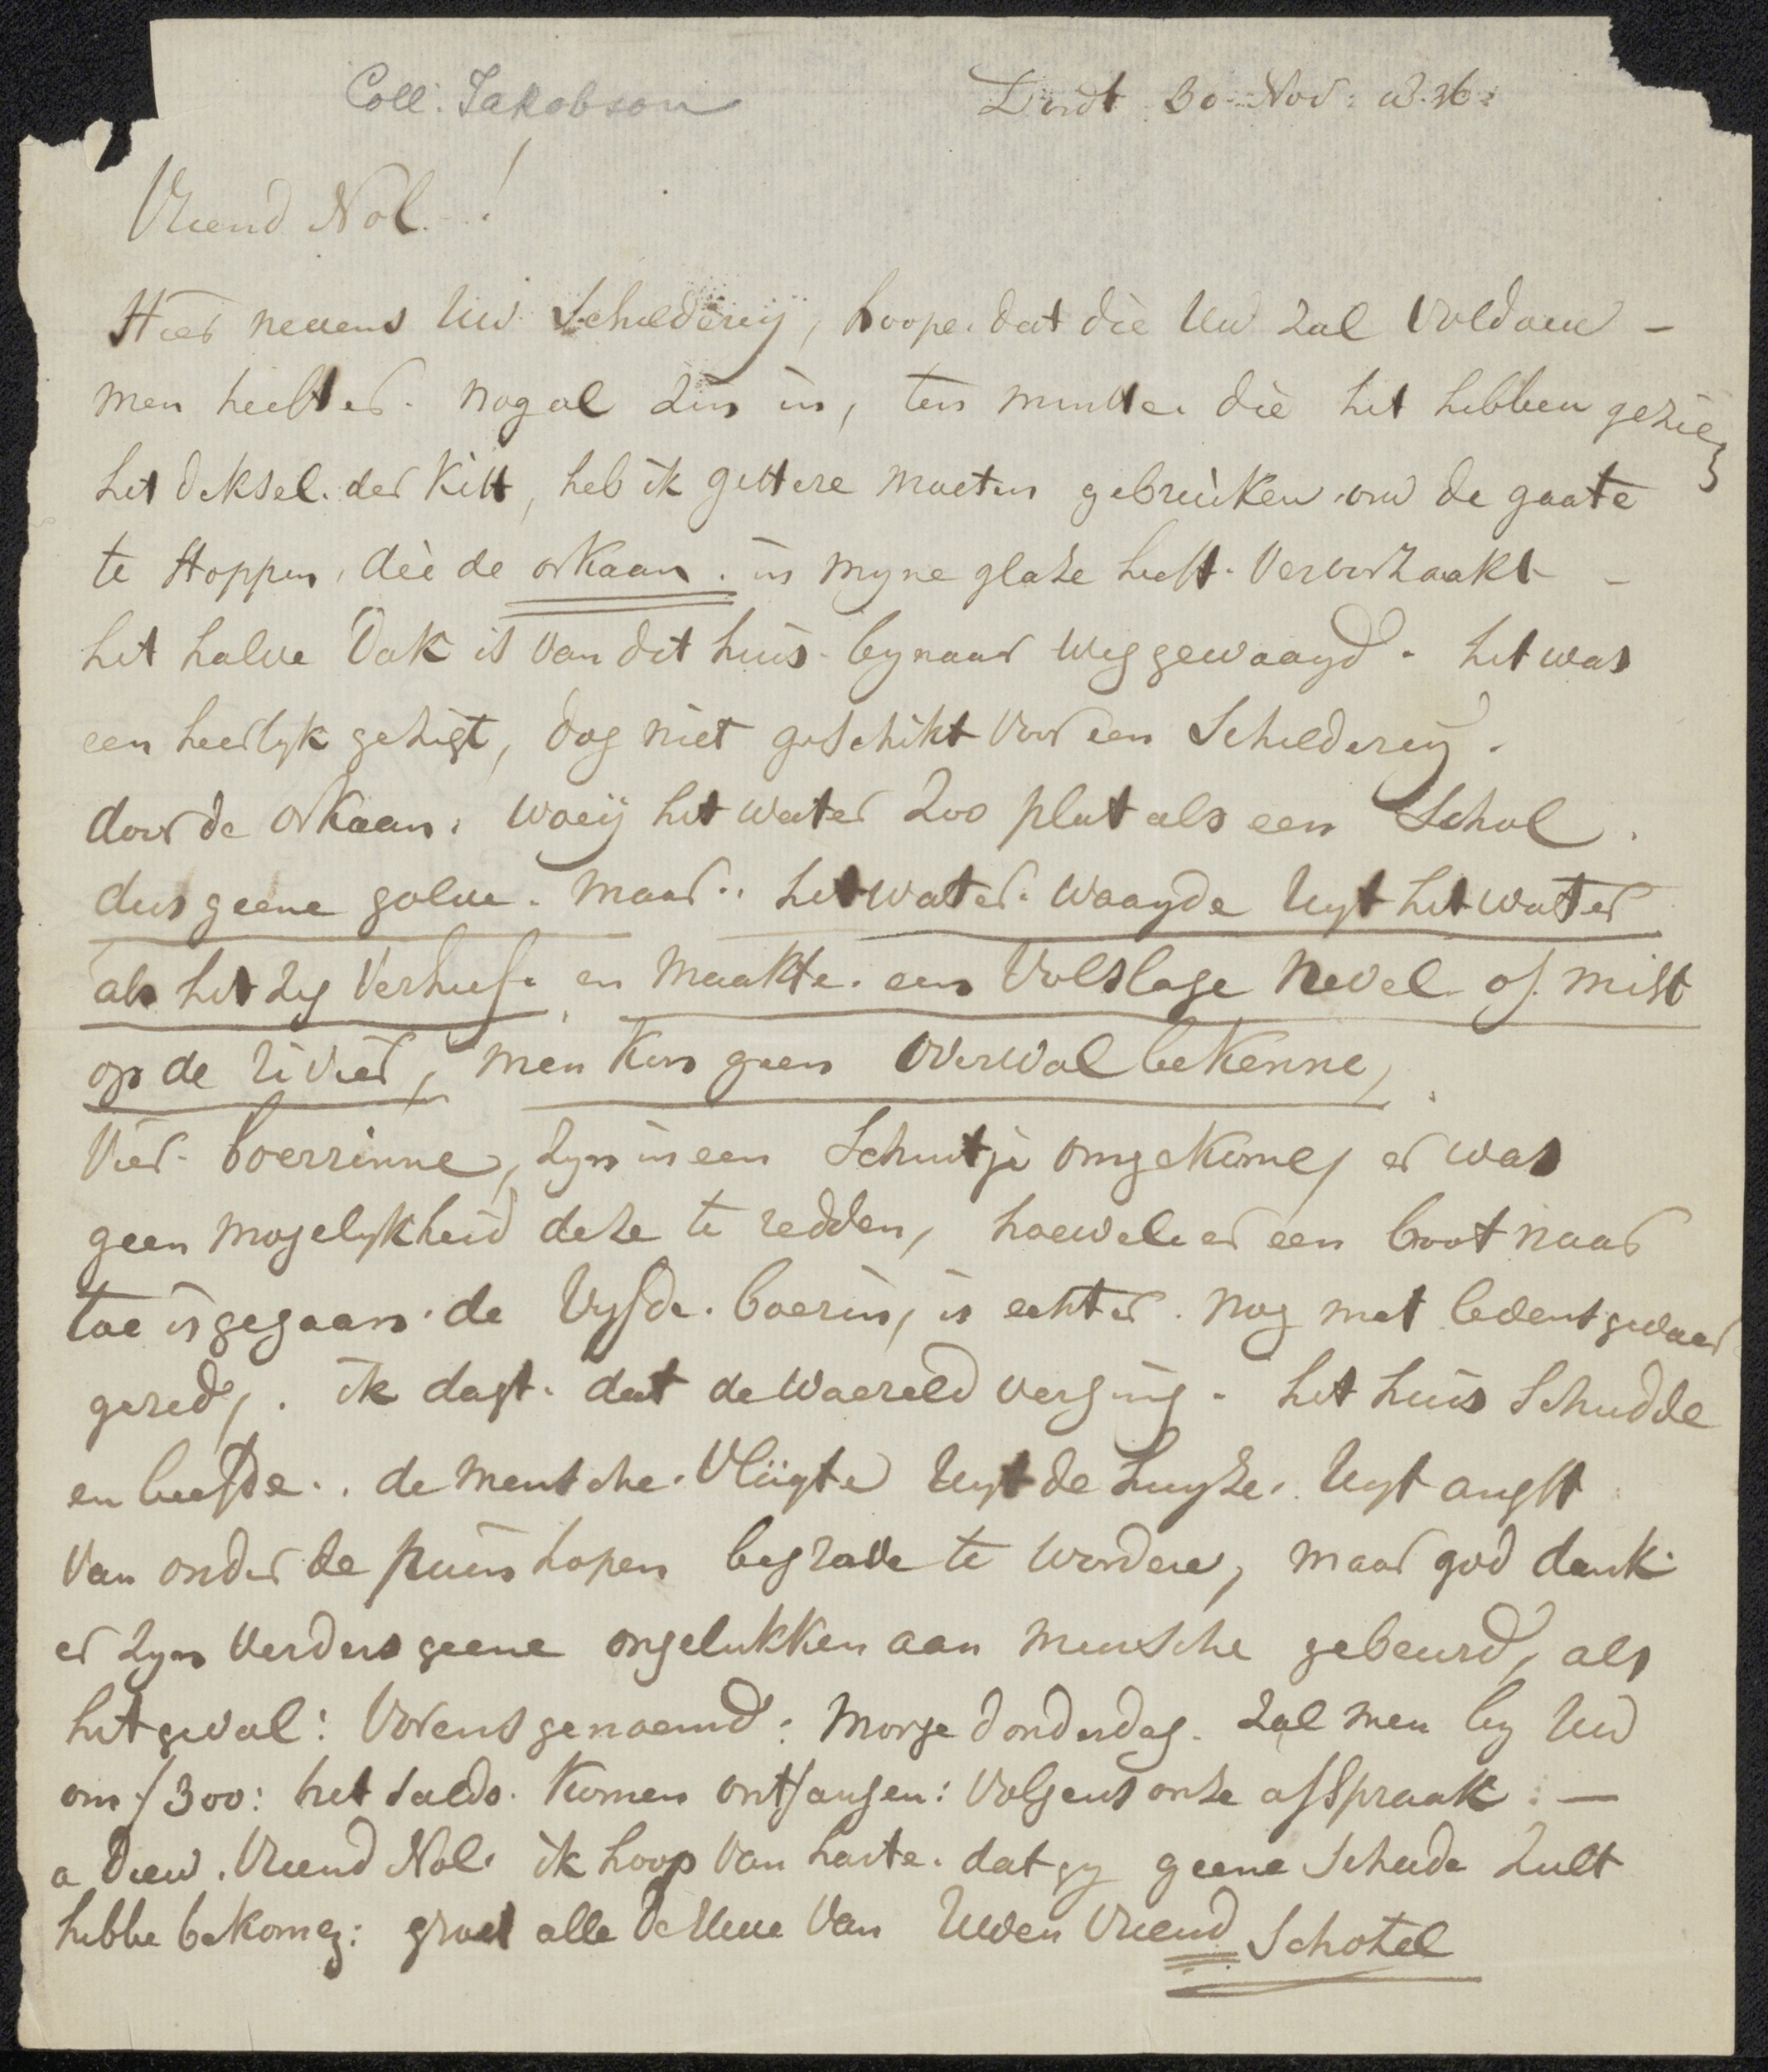 Coll. Jakobson
Dordt 30 Nov: 1836:
Vriend Nol. !
Hier nevens Uw. Schildereij, hoope. dat die Uw zal Voldoen –
men heeft er. nogal zin in, ten minste. die het hebben gezien
het deksel. der kist, heb ik gistere moeten gebruiken om de gaate
te stoppen, die de orkaan. in myne glaze heeft. Veroorzaakt –
het halve Dak is van dit huis. bynaar weg gewaayd. het was
een heerlyk gezigt, dog niet geschikt voor een Schildereij.
door de orkaan, woeij het water zoo plat als een Schol.
dus geene golve. maar.. het water. waayde Uyt het water
als het zig Verhief. en maakte. een Volslage Nevel of mist
op de rivier, men kon geen overwal bekenne,
Vier. boerrinne, zyn in een Schuitje omgekome, er was
geen mogelykheid deze te redden, hoewel er een boot naar
toe is gegaan. de Vyfde. boerin, is echter. nog met levensgevaar
gered,. ik dagt. dat de Waereld verging. het huis Schudde
en beefde.. de mentsche. Vlügte Uyt de huyze. Uyt angst
van onder de puinhopen begrave te worden, maar god dank.
er zyn verders geene ongelukken aan mensche gebeurd, als
het geval: Vorens genoemd: morge donderdag. zal men by Uw
om ƒ300: het saldo. komen ontfangen: Volgens onze afspraak: —
a Dieu. Vriend Nol. ik hoop van harte. dat gy geene Schade zult
hebbe bekomen: groet alle Vrienden Van Uwen Vriend Schotel